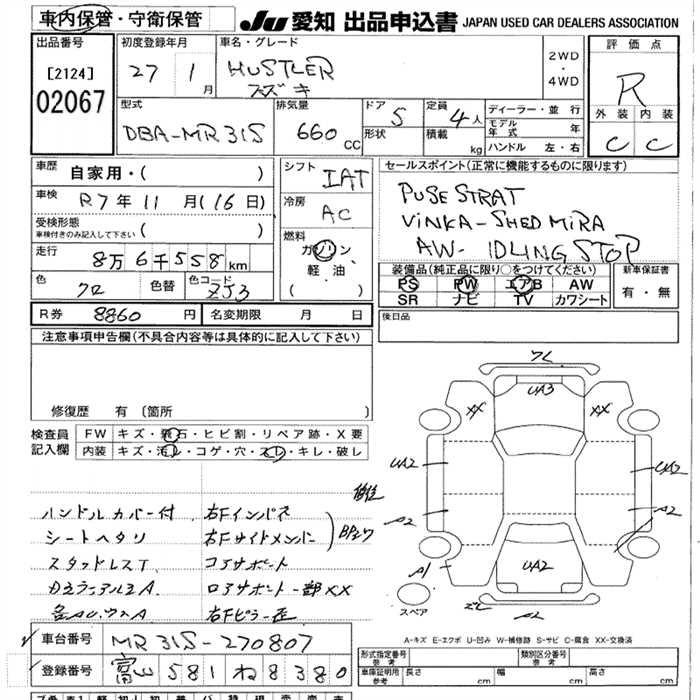 車内保管・守衛保管
JU 愛知 出品申込書 JAPAN USED CAR DEALERS ASSOCIATION
出品番号
[2124]
02067
初度登録年月
27 1 月
車名・グレード
HUSTLER
スズキ
2WD
・
4WD
評価点
R
外装 内装
C C
型式
DBA-MR31S
排気量
660 CC
ドア 5
形状
定員 4 人
積載 kg
ディーラー・並行
モデル年式 年
ハンドル 左・右
車歴 自家用・( )
車検 R7 年 11 月 (16 日)
受検形態
車検付きのみ記入して下さい ( )
走行 8万6千558 km
色 クロ 色替 色コード ZJ3
シフト IAT
冷房 AC
燃料
ガソリン
軽油
( )
セールスポイント(正常に機能するものに限ります)
PUSE STRAT
VINKA-SHED MIRA
AW- IDLING STOP
装備品(純正品に限り○をつけてください)
PS PW エアB AW
SR ナビ TV カワシート
新車保証書
有・無
R券 8860 円 名変期限 月 日
後日品
注意事項申告欄(不具合内容等は具体的に記入して下さい)
修復歴 有 (箇所 )
検査員記入欄
FW キズ・飛石・ヒビ割・リペア跡・X要
内装 キズ・汚レ・コゲ・穴・スレ・キレ・破レ
ハンドルカバー付 右Fインパネ
シートヘタリ 右Fサイドメンバー
スタッドレスT コアサポート
ロアサポート一部XX
フレ
UA3
XX XX
UA2 UA2
A2 A2
A1 UA2
スペア
A2
A-キズ E-エクボ U-凹み W-補修跡 S-サビ C-腐食 XX-交換済
車台番号 MR31S-270807
登録番号 富山 581 ね 8380
形式指定番号 参考 類別区分番号 参考
車庫証明用 参考 長さ cm 幅 cm 高さ cm